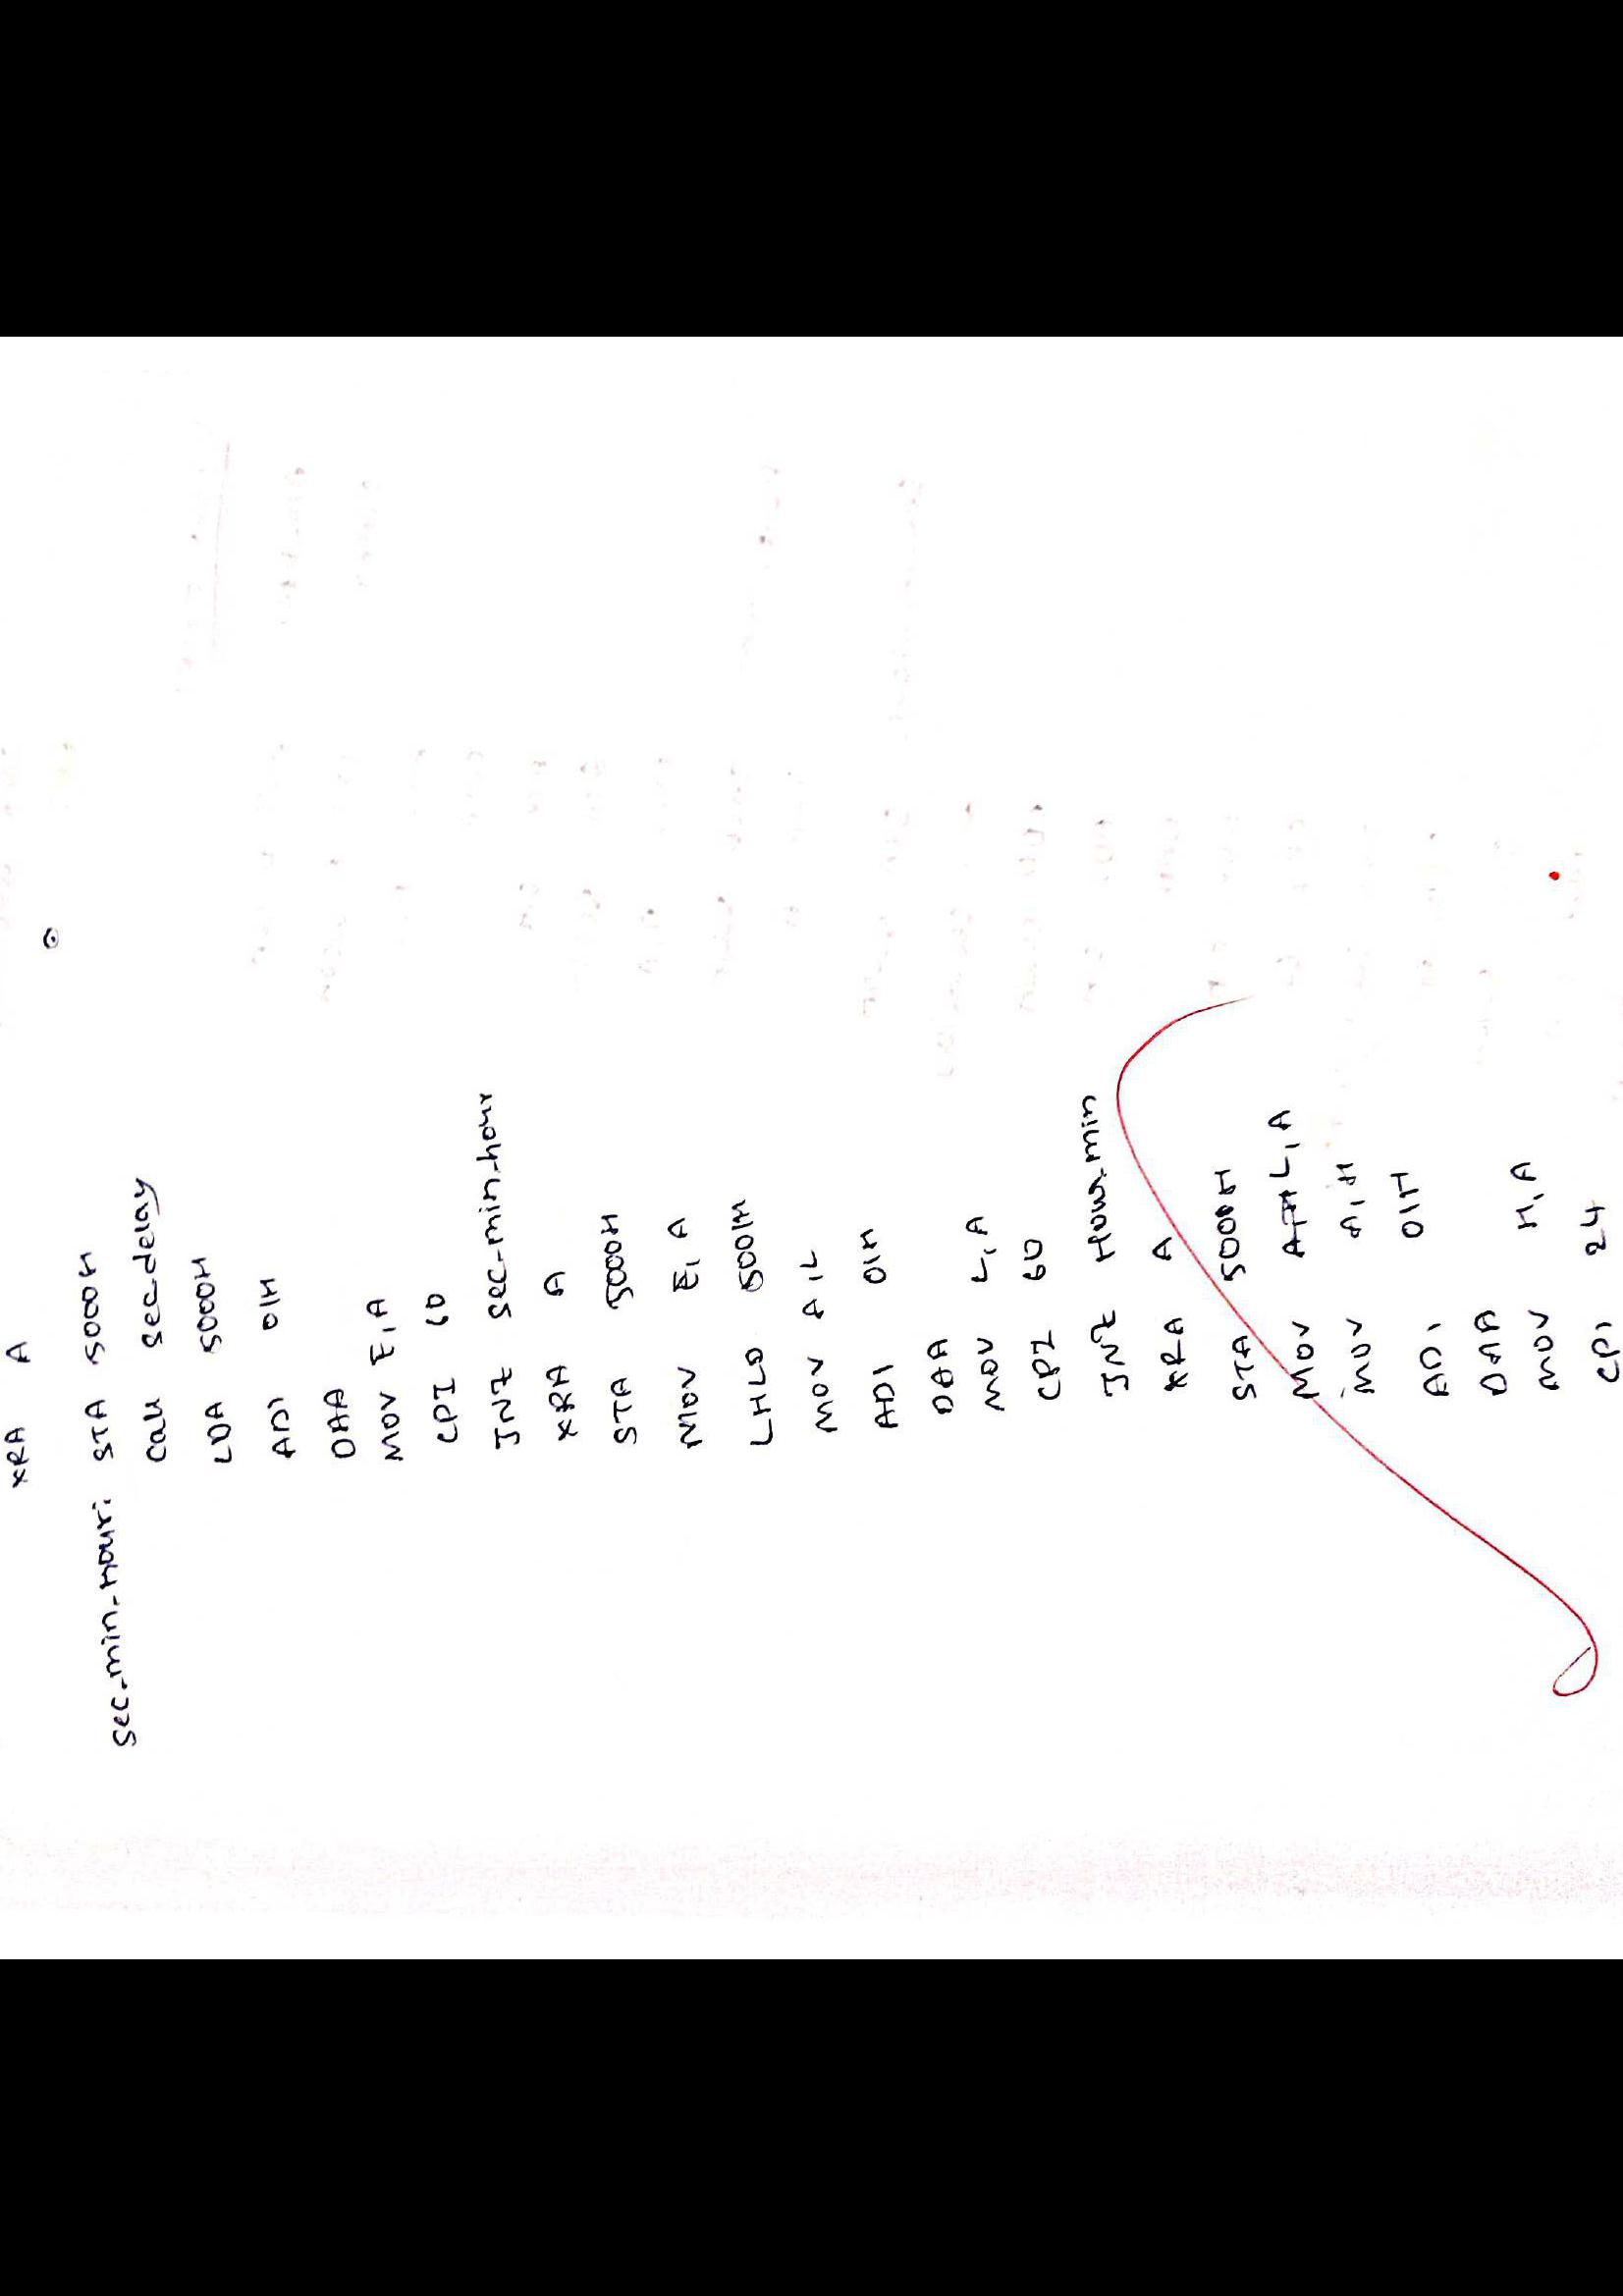 XRA A
Sec-min-hour: STA 5000H
Call sec-delay
LDA 5000H
ADI 01H
DAA
MOV E,A
CPI 60
JNZ sec-min-hour
XRA A
STA 5000H
MOV E,A
LHLD 5001H
MOV A,L
ADI 01H
DAA
MOV L,A
CPI 60
JNZ Hour-min
XRA A
STA 5000H
MOV L,A
MOV A,H
ADI 01H
DAA
MOV H,A
CPI 24